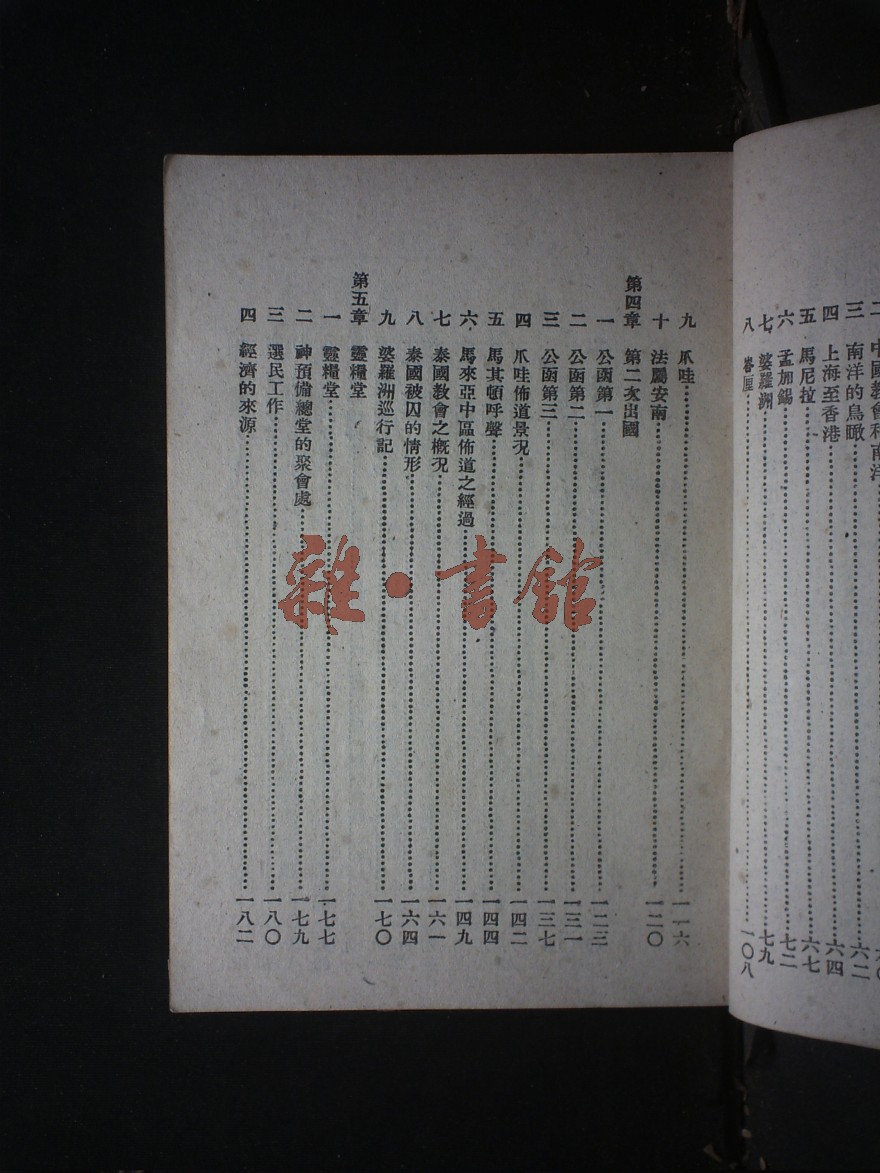 二 中國教會和南洋
三 南洋的鳥瞰……六二
四 上海至香港……六四
五 馬尼拉……六七
六 孟加錫……七二
七 婆羅洲……七九
八 峇厘……一〇八
九 爪哇……一一六
十 法屬安南……一二〇
第四章 第二次出國
一 公函第一……一二三
二 公函第二……一三一
三 公函第三……一三七
四 爪哇佈道景况……一四二
五 馬其頓呼聲……一四四
六 馬來亞中區佈道之經過……一四九
七 泰國教會之概况……一六一
八 泰國被囚的情形……一六四
九 婆羅洲巡行記……一七〇
第五章 靈糧堂
一 靈糧堂……一七七
二 神預備總堂的聚會處……一七九
三 選民工作……一八〇
四 經濟的來源……一八二
雜·書館